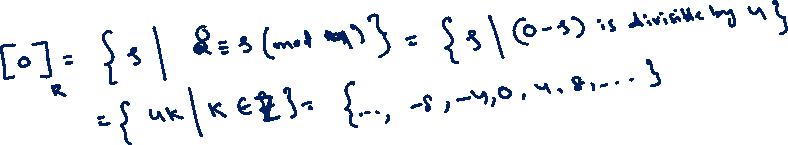 [0]_R = { s | 0 ≡ s (mod 4) } = { s | (0-s) is divisible by 4 }
= { 4k | k ∈ Z } = { ..., -8, -4, 0, 4, 8, ... }